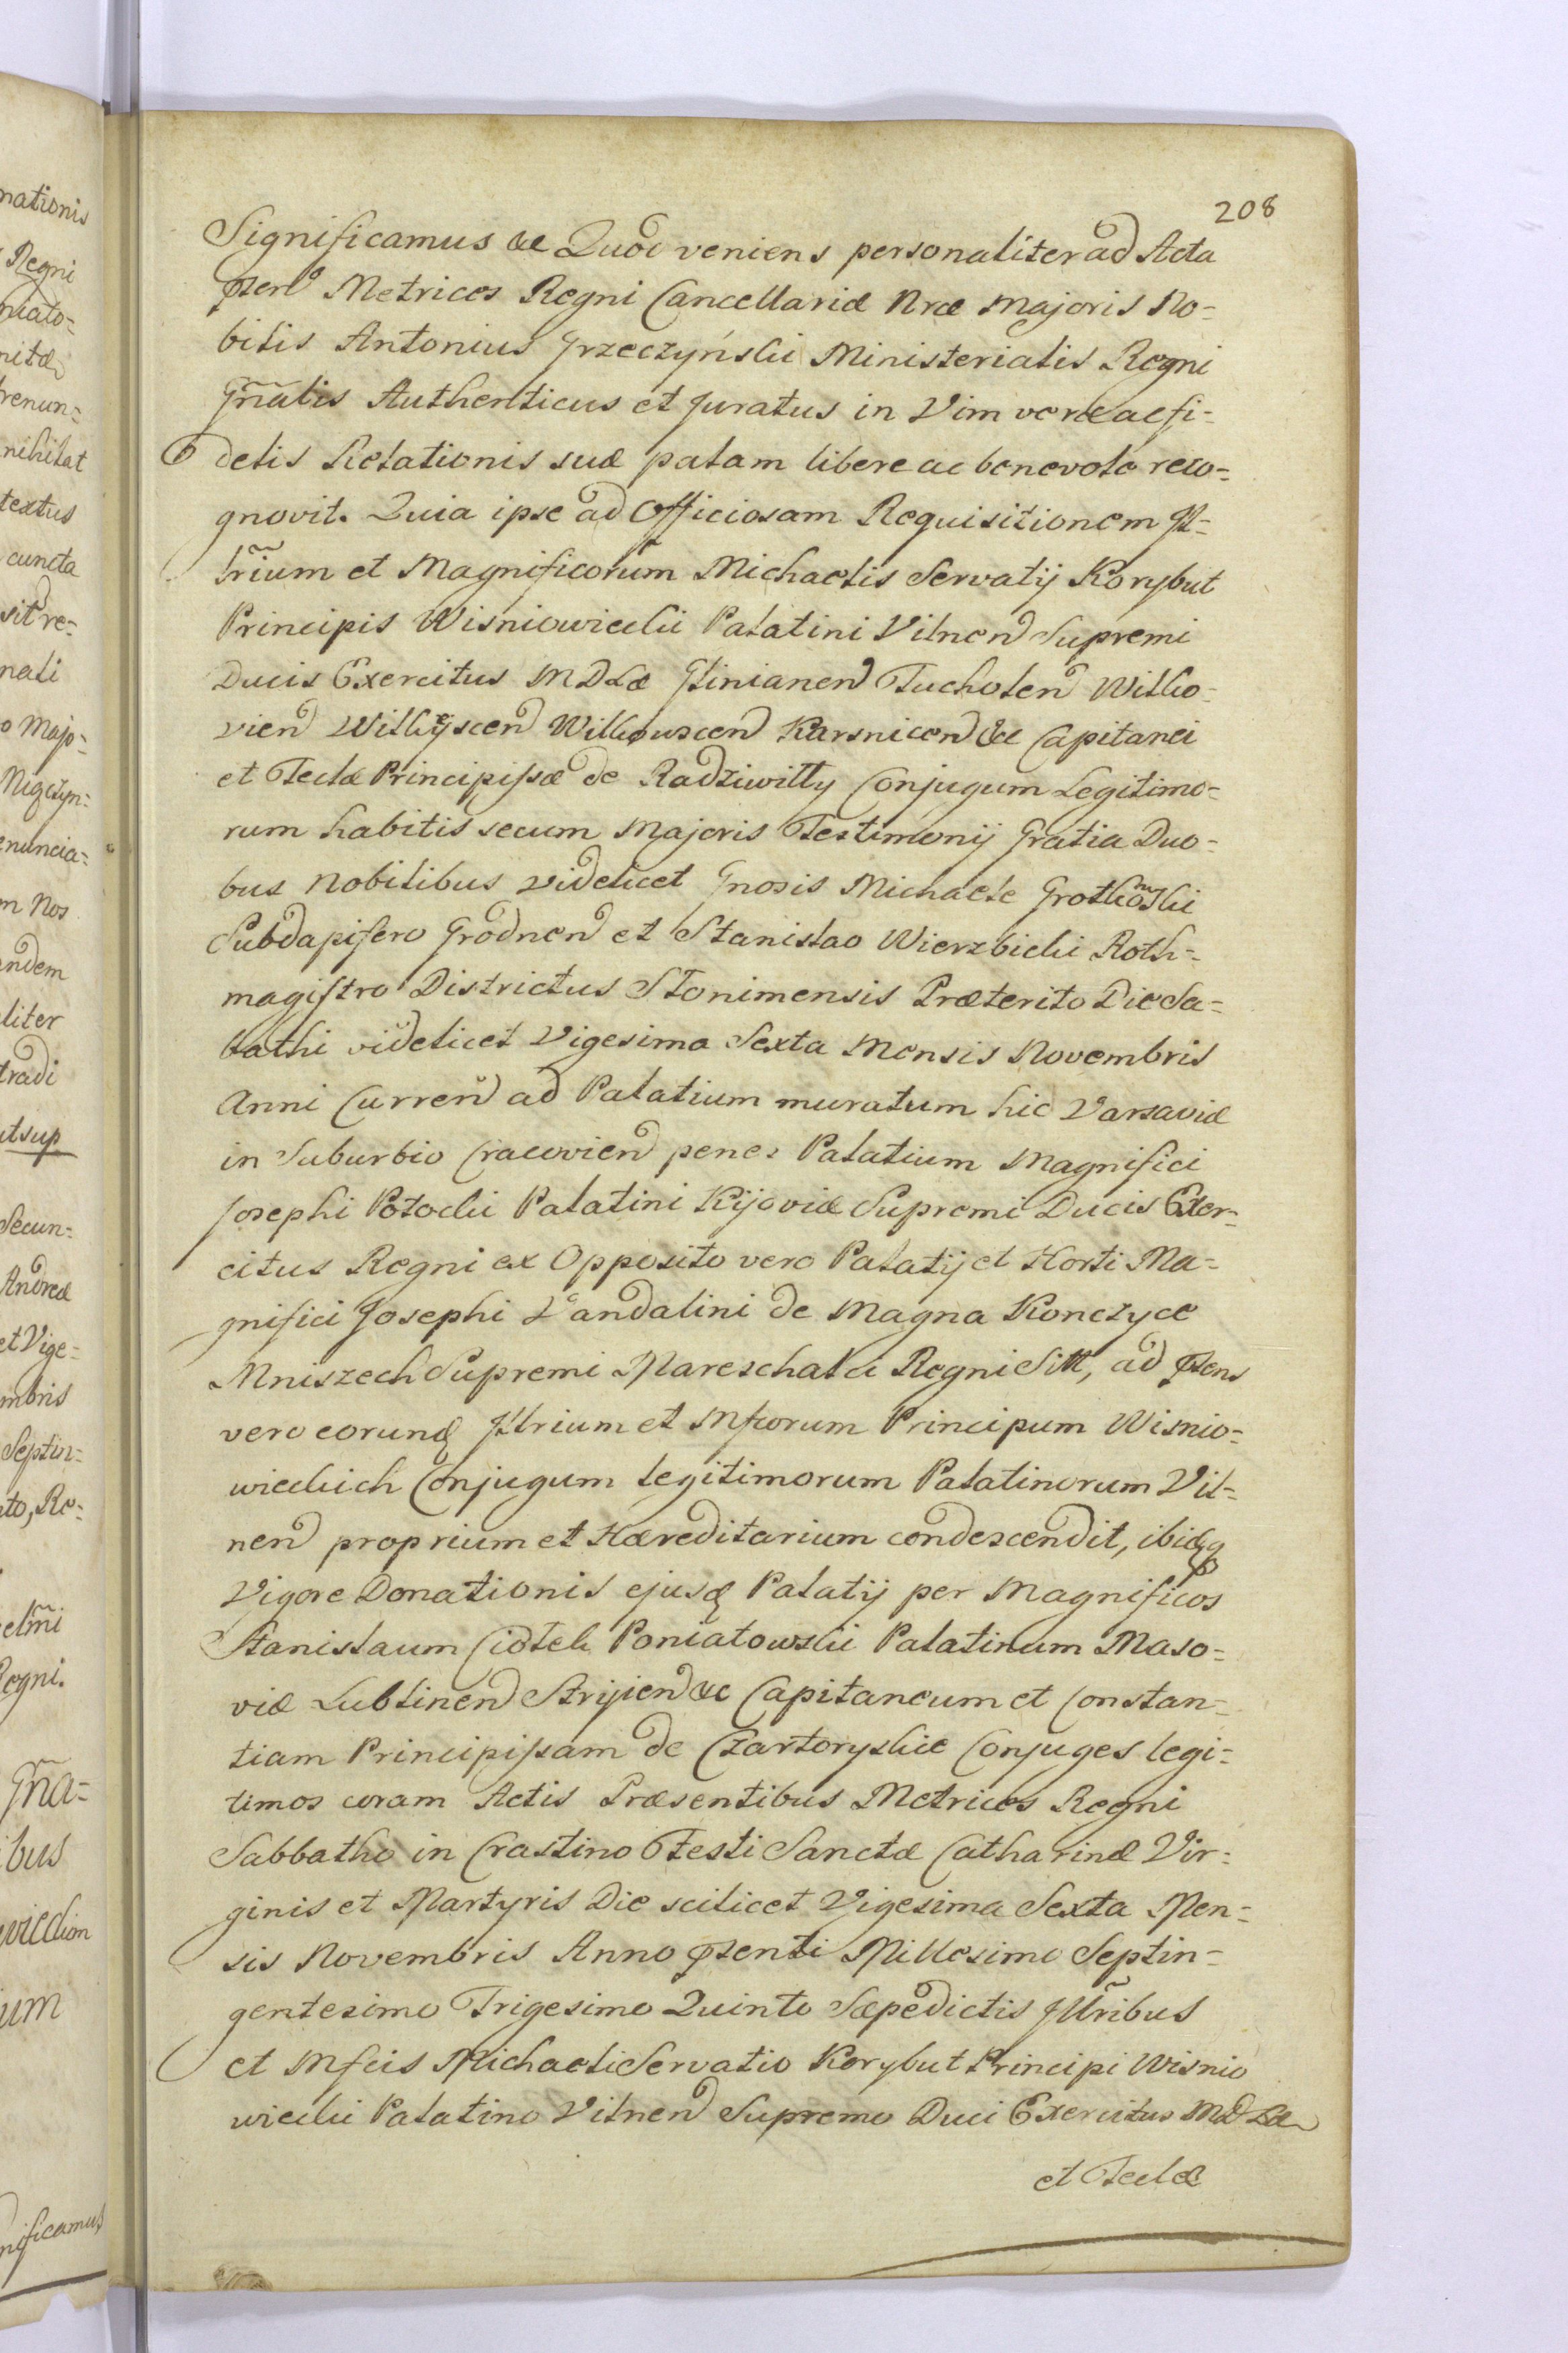 208
Significamus &c Quod veniens personaliter ad Acta
pñtia Metrices Regni Cancellariæ Nræ Majoris No=
bilis Antonius Grzeczyński Ministerialis Regni
Gñalis Authenticus et Juratus in Vim veræ ac fi=
delis Relationis suæ palam libere ac benevole reco=
gnovit. Quia ipse ad Officiosam Requisitionem Il=
lrium et Magnificorum Michaelis Servatij Korybut
Principis Wisniowiecki Palatini Vilnen Supremi
Ducis Exercitus MDLæ Glinianen Tucholen Wilko=
vien Wilkyscen Wilkowscen Karsnicen &c Capitanei
et Teclæ Principissæ de Radziwiłły Conjugum Legitimo=
rum habitis secum Majoris Testimonij Gratia Duo=
bus Nobilibus videlicet Gnosis Michaele Grotkowski
Subdapifero Grodnen et Stanislao Wierzbicki Roth=
magistro Districtus Słonimensis Præterito Die Sa=
bathi videlicet Vigesima Sexta Mensis Novembris
Anni Curren ad Palatium muratum hic Varsaviæ
in Suburbio Cracovien penes Palatium Magnifici
Josephi Potocki Palatini Kijoviæ Supremi Ducis Exer=
citus Regni ex Opposito vero Palatij et Horti Ma=
gnifici Josephi Vandalini de Magna Konczyce
Mniszech Supremi Mareschalci Regni Sitt, ad pñs
vero eorund Illrium et Mfcorum Principum Wisnio=
wieckich Conjugum legitimorum Palatinorum Vil=
nen proprium et Hæreditarium condescendit, ibidq
Vigore Donationis ejusd Palatij per Magnificos
Stanislaum Ciołek Poniatowski Palatinum Maso=
viæ Lublinen Stryien &c Capitaneum et Constan=
tiam Principissam de Czartoryskie Conjuges legi=
timos coram Actis Præsentibus Metrices Regni
Sabbatho in Crastino Festi Sanctæ Catharinæ Vir=
ginis et Martyris Die scilicet Vigesima Sexta Men=
sis Novembris Anno pñti Millesimo Septin=
gentesimo Trigesimo Quinto Sæpedictis Illribus
et Mfcis Michaeli Servatio Korybut Principi Wisnio
wiecki Palatino Vilnen Supremo Duci Exercitus MDLæ
et Teclæ